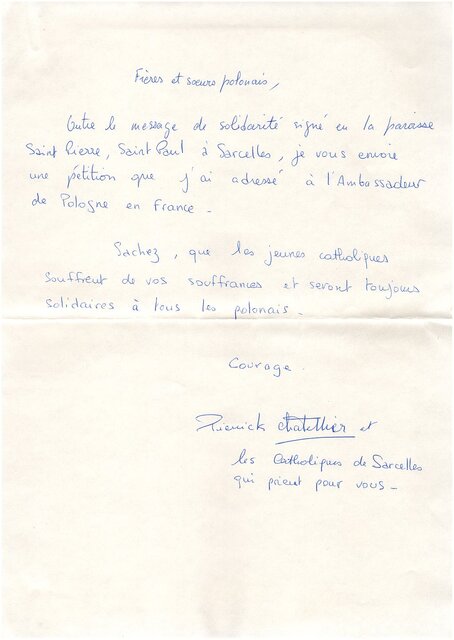 Frères et sœurs polonais,
Outre le message de solidarité signé en la paroisse
Saint Pierre, Saint Paul à Sarcelles, je vous envoie
une pétition que j'ai adressé à l'Ambassadeur
de Pologne en France.
Sachez, que les jeunes catholiques
souffrent de vos souffrances et seront toujours
solidaires à tous les polonais.
Courage.
Pierrick Chatellier et
les Catholiques de Sarcelles
qui prient pour vous_